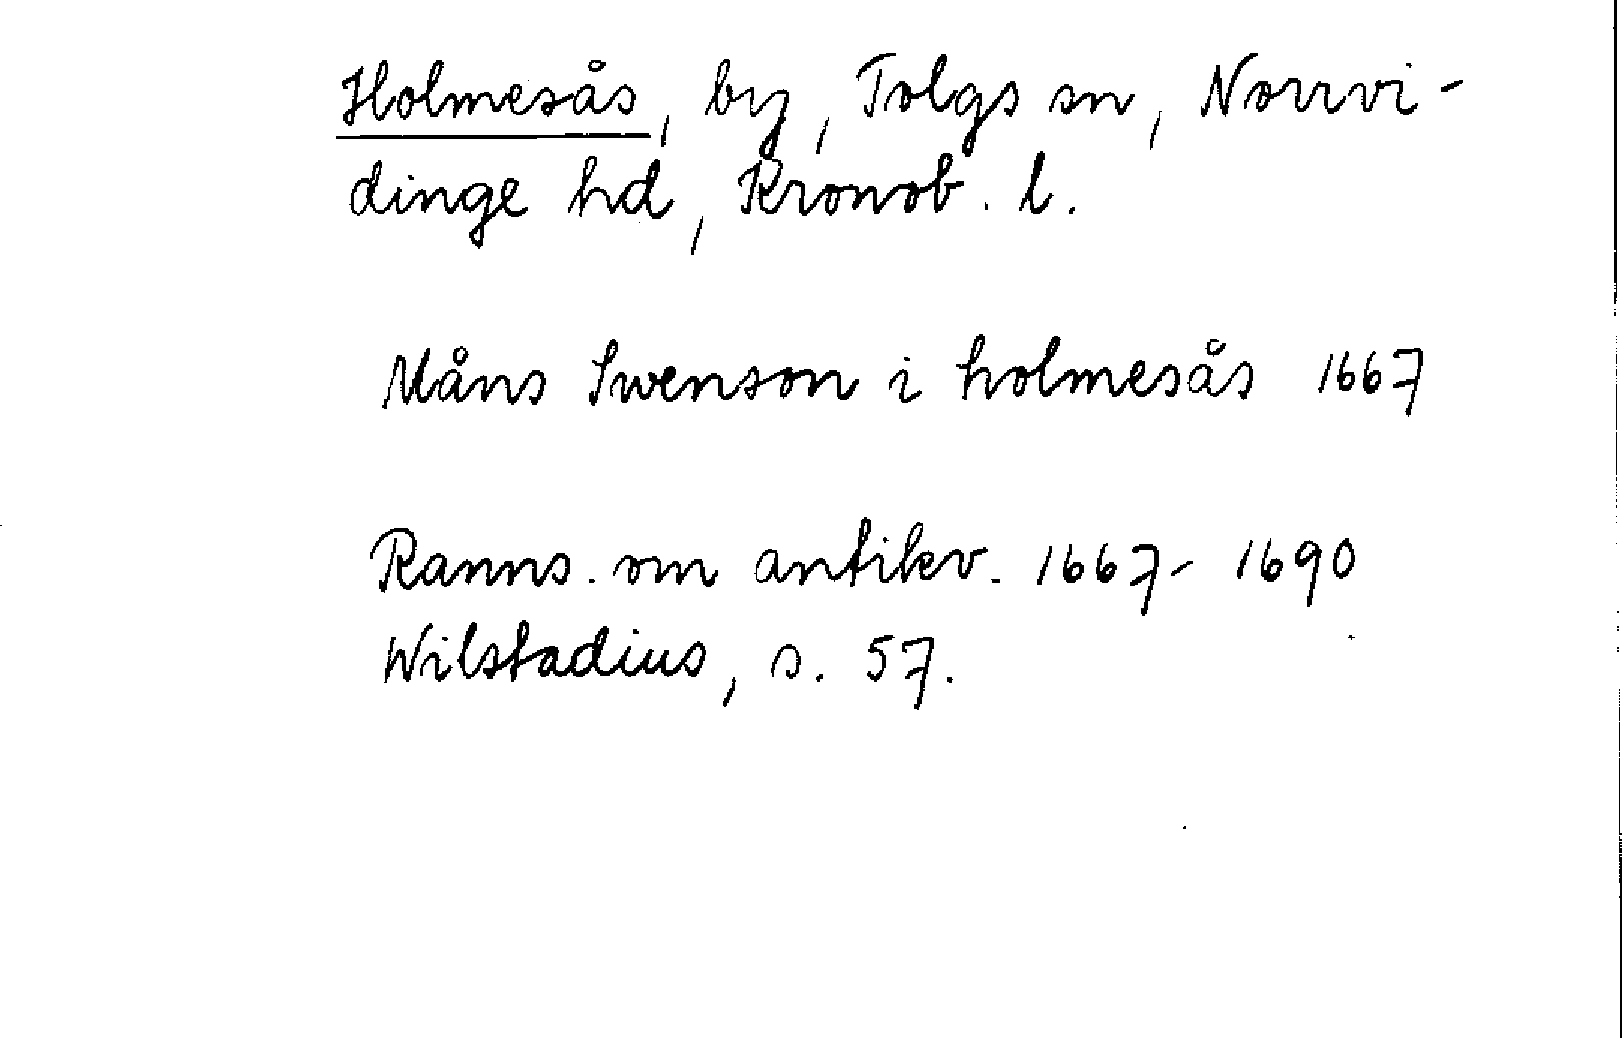 Holmesås, by, Tolgs sn, Norrvi-
dinge hd, Kronob. l.
Måns Swenson i holmesås 1667
Ranns. om antikv. 1667-1690
Wilstadius, s. 57.